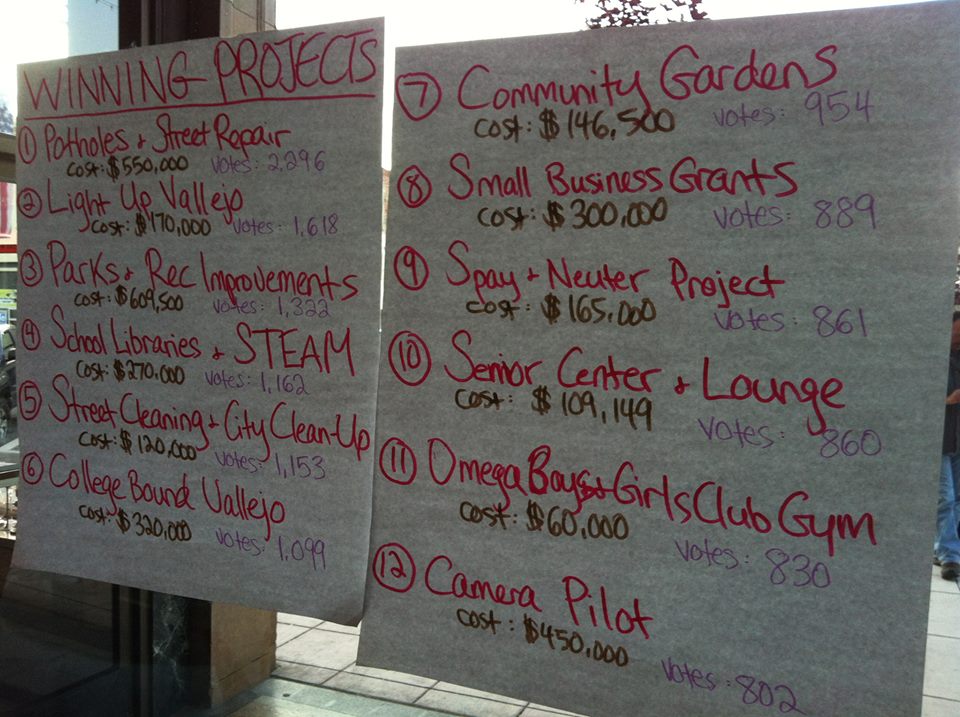 WINNING PROJECTS
① Potholes + Street Repair
cost: $550,000 votes: 2,296
② Light Up Vallejo
cost: $170,000 votes: 1,618
③ Parks + Rec Improvements
cost: $609,500 votes: 1,322
④ School Libraries + STEAM
cost: $270,000 votes: 1,162
⑤ Street Cleaning + City Clean-Up
cost: $120,000 votes: 1,153
⑥ College Bound Vallejo
cost: $320,000 votes: 1,099
⑦ Community Gardens
cost: $146,500 votes: 954
⑧ Small Business Grants
cost: $300,000 votes: 889
⑨ Spay + Neuter Project
cost: $165,000 votes: 861
⑩ Senior Center + Lounge
cost: $109,149 votes: 860
⑪ Omega Boys + Girls Club Gym
cost: $60,000 votes: 830
⑫ Camera Pilot
cost: $450,000 votes: 802